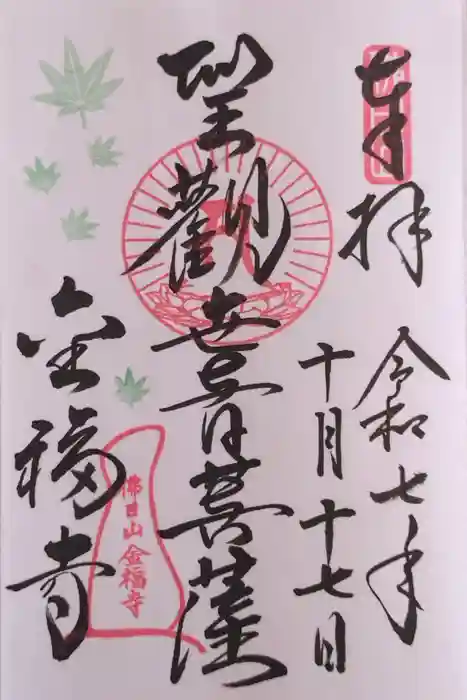 奉拝
令和七年
十月十七日
聖觀世音菩薩
金福寺
佛日山
金福寺